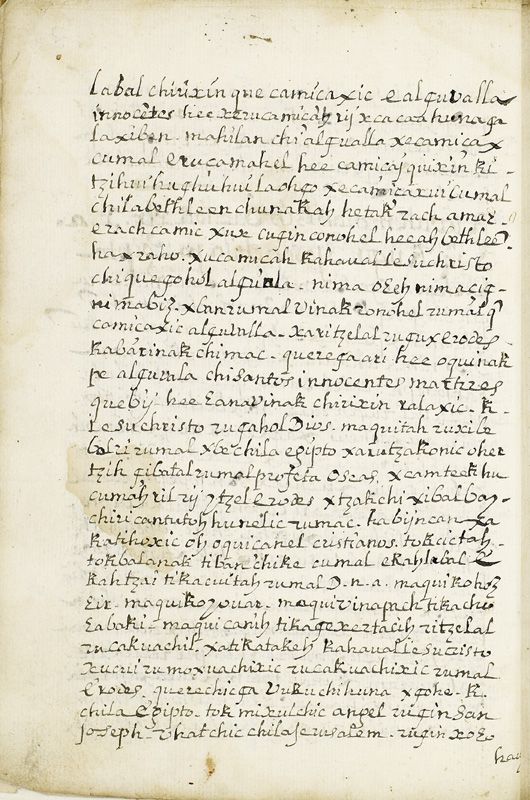 labal chirixin que camicaxic e alguvalla
innocētes hee xerucamicah rij xcacaa hunaga
laxiben. mahilan chi algualla xecamicax
cumal erucamahel hee camicaj quixin ki-
tzihui hughu hui laohgo xecamicaxui cumal
chila bethleen chunakah hetak rach amar.
erach camic xux cugin conohel heeah bethleē.
haxraho. xucamicah kahaualle suchristo
chique gohol alguala. nima oɛeh nimacig-
nimabiz. xbanrumal vinak ronohel rumal q̄
camicaxic alguualla. xaritzelal rugux erodes.
kabarinak chimac. queregaari hee oquinak
pe alguala chi santos innocentes martires
quebij hee ɛanavinak chirixin ralaxic. k.
lesuchristo rugahol Dios. maquitah ruxibe
balri rumal xbe chila egipto xarutzakonic oher
tzih gibatal rumal profeta oseas. xcamteek hu
cumah ril rij ytzel Erodes xtzakchi xibalbay-
chiri cantutoh hunelic rumac. kabijncan xa
katihoxic oh oquicanel cristianos. tokcictah.
tokbalanak tiban chike cumal ekahlabal
kahtzai tikacuitah rumal D.n.a. maquikohoz
Eir. maquikozouar. maquivinapach tikachu
ɛabaki. maquicanih tikagexertacih ritzelal
rucakuachil. xatikatakeh kahaualle sucristo
xucui rumoxuachixic rucakuachixic rumal
Erodes. querechicga vukuchihuna xgohe. k.
chila Egipto. tok mixulchic angel rugin San
joseph. vhatchic chila jerusalem. rugin xoɛo
hay